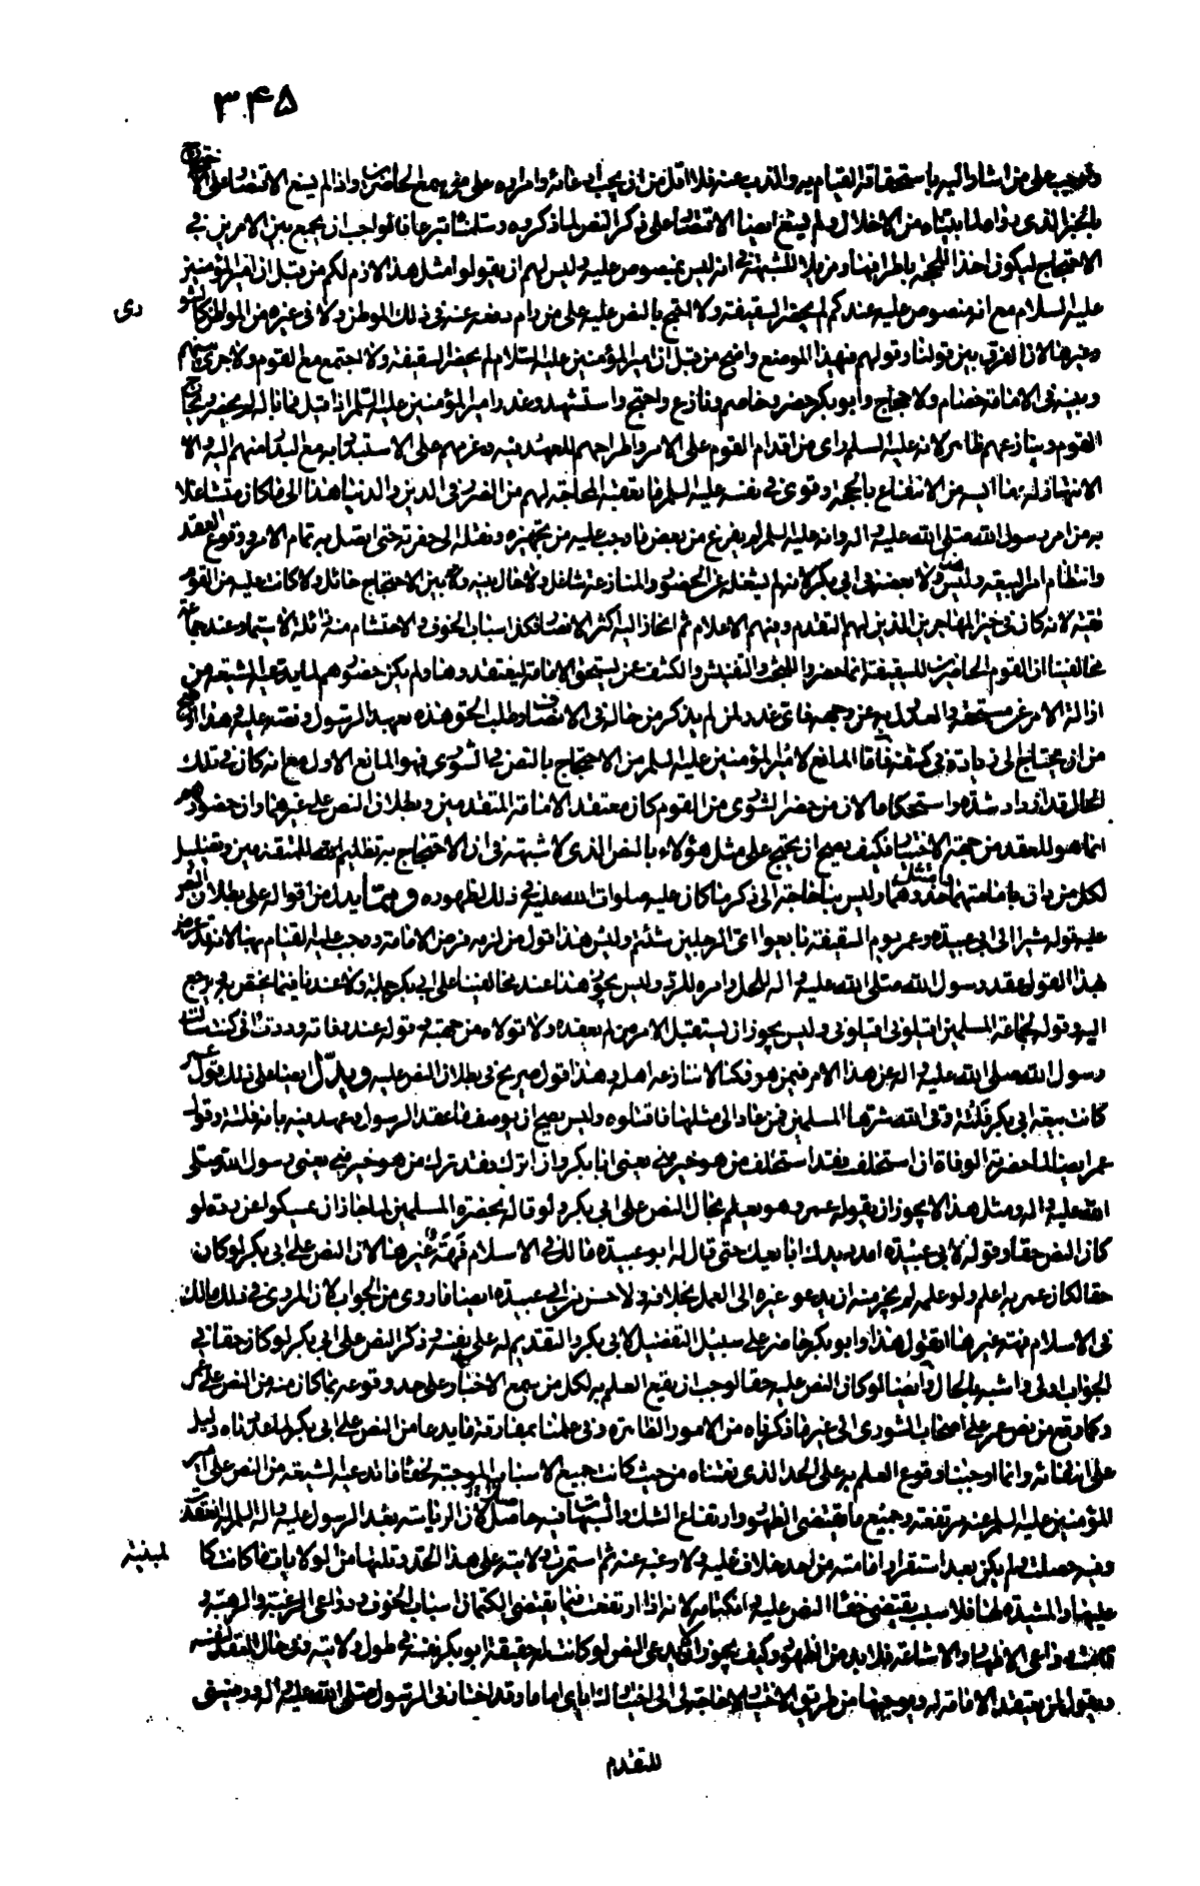 ۳۴۵
على من اشار اليه باستحقاقه القيام به والذب عنه فلا اقل من ان يجب ادعائه وايراده على من يسمع الحاضرين واذا لم يسغ الاقتصار على الا
بالخبر الذى رواه لما بيناه من الاخلال ولم يسغ ايضا الاقتصار على ذكر النص لما ذكروه وسلمناه تبرعا فالواجب ان يجمع بين الامرين فى
الاحتجاج ليكون اخذا للحجة باطرافها ومزيلا للشبهة فى انه ليس بمنصوص عليه وليس لهم ان يقولوا مثل هذا لازم لكم من قبل ان امير المؤمنين
عليه السلام مع انه منصوص عليه عندكم لم يحضر السقيفة ولا احتج بالنص عليه على من رام دفعه عنه فى ذلك الموطن ولا فى غيره من المواطن كالشو
رى
وغيرها لان الفرق بين قولنا وقولهم فى هذا الموضع واضح من قبل ان امير المؤمنين عليه السلام لم يحضر السقيفة ولا اجتمع مع القوم ولا جرى بينهم
وبينه فى الامامة خصام ولا حجاج وابو بكر حضر وخاصم ونازع واحتج واستشهد وعذر امير المؤمنين عليه السلم اذا قيل فما باله لم يحضر ويحاج
القوم وينازعهم ظاهر لانه عليه السلم راى من اقدام القوم على الامر واطراحهم للعهد فيه وعزمهم على الاستبداد به مع البدار منهم اليه والا
الانتهاز له ما آيسه من الانتفاع بالحجة وقوى فى نفسه عليه السلم ما تعقبه المحاجة لهم من الضرر فى الدين والدنيا هذا الى ما كان متشاغلا
به من امر رسول الله صلى الله عليه واله وانه عليه السلم لم يفرغ من بعض ما وجب عليه من تجهيزه ونقله الى حفرته حتى اتصل به تمام الامر ووقوع العقد
وانتظام امر البيعة وليس ولا بعضه فى ابى بكر لانه لم يشغله عن الحضور والمنازعة شاغل ولا حال بينه وبين الاحتجاج حائل ولا كانت عليه من القوم
تقية لانه كان فى حيز المهاجرين الذين لهم التقدم وفيهم الاعلام ثم انحاز اليه اكثر الانصار فكل اسباب الخوف والاحتشام منه زائلة لا سيما وعند جماعة
مخالفينا ان القوم الحاضرين للسقيفة انما حضروا للبحث والتفتيش والكشف عمن يستحق الامامة ليعقدوها له ولم يكن حضورهم لما يدعيه الشيعة من
ازالة الامر عن مستحقه والعدول به عن وجهه فاى عذر لمن لم يذكر من حاله فى الانصاف وطلب الحق هذه بعهد الرسول ونصه عليه وهذا اوضح
من ان يحتاج الى زيادة فى كشفه فاما المانع لامير المؤمنين عليه السلم من الاحتجاج بالنص فى الشورى فهو المانع الاول مع انه كان فى تلك
الحال قد ازداد شدة واستحكاما لان من حضر الشورى من القوم كان معتقد الامامة المتقدمين وبطلان النص على غيرهما وان حضورهم
انما هو للعقد من جهة الاختيار فكيف يصح ان يحتج على مثل هؤلاء بالنص الذى لا شبهة فى ان الاحتجاج به تظليم للمتقدمين وتضليل
لكل من دان بامامتهما وامتثل حدودهما وليس بنا حاجة الى ذكر ما كان عليه صلوات الله عليه فى ذلك لظهوره ومما يدل من اقواله على بطلان النص
عليه قوله مشيرا الى ابى عبيدة وعمر يوم السقيفة بايعوا اى الرجلين شئتم وليس هذا قول من لزمه فرض الامامة ووجب عليه القيام بها لانه تعرض
بهذا القول عقد رسول الله صلى الله عليه واله للحل وامره للرد وليس يجوز هذا عند مخالفينا على ابى بكر جملة ولا عندنا فيما يختص به ويرجع
اليه وقوله لجماعة المسلمين اقيلونى اقيلونى وليس يجوز ان يستقيل الامر من لم يعقده ولا تولاه من جهته وقوله عند وفاته وددت انى كنت سالت
رسول الله صلى الله عليه واله عن هذا الامر فيمن هو فكنا لا ننازعه اهله وهذا قول صريح فى بطلان النص عليه ويدل ايضا على ذلك قول عمر
كانت بيعة ابى بكر فلتة وقى الله شرها المسلمين فمن عاد الى مثلها فاقتلوه وليس يصح ان يوصف ما عقد الرسول وعهد فيه بانه فلتة وقول
عمر ايضا لما حضرته الوفاة ان استخلف فقد استخلف من هو خير منى يعنى ابا بكر وان اترك فقد ترك من هو خير منى يعنى رسول الله صلى
الله عليه واله ومثل هذا لا يجوز ان يقوله عمر وهو يعلم بحال النص على ابى بكر ولو قاله بحضرة المسلمين لما جاز ان يمسكوا عن رده لو
كان النص حقا وقوله لابى عبيدة امدد يدك ابايعك حتى قال له ابو عبيدة مالك فى الاسلام فهة غيرها لان النص على ابى بكر لو كان
حقا لكان عمر به اعلم ولو علمه لم يجز منه ان يدعو غيره الى العمل بخلافه ولا حسن من ابى عبيدة ايضا ما روى من الجواب لان المروى فى ذلك مالك
فى الاسلام فهة غيرها اتقول هذا وابو بكر حاضر على سبيل التفضيل لابى بكر والتقديم له على نفسه وذكر النص على ابى بكر لو كان حقا فى
الجواب اولى واشبه بالحال وايضا لو كان النص عليه حقا لوجب ان يقع العلم به لكل من يسمع الاخبار وعلى حد وقوعه بما كان منه من النص على عمر
وكما وقع من نص عمر على اصحاب الشورى الى غير ما ذكرناه من الامور الظاهرة وفى علمنا بمفارقة ما يدعا من النص على ابى بكر لما عددناه دليل
على انتفائه وانما اوجبنا وقوع العلم به على الحد الذى بيناه من حيث كانت جميع الاسباب الموجبة لخفاء ما تدعيه الشيعة من النص على امير
المؤمنين عليه السلم عنه مرتفعة وجميع ما يقتضى الظهور وارتفاع الشك والشبهات فيه حاصل لان الرياسة بعد الرسول عليه واله السلم له انعقدت
وفيه حصلت ولم يكن بعد استقرار امامته من احد خلاف عليه ولا رغبة عنه ثم استمرت ولايته على هذا الحد وتلتها من الولايات ما كانت كا
لمبنية
عليها والمشيدة لها فلا سبب يقتضى خفاء النص عليه وانكتامه لانه اذا ارتفعت فيما يقتضى الكتمان اسباب الخوف ودواعى الرغبة والرهبة و
دواعى الاظهار والاشاعة فلا بد من الظهور وكيف يجوز ان لا يدعى النص لو كانت له حقيقة ابو بكر لنفسه فى طول ولايته وفى حال العقد لنفسه
ويقول لمن يعتقد الامامة له ويوجبها من طريق الاختيار لا حاجة لى الى اختيارك اياى اماما وقد اختارنى الرسول صلى الله عليه واله ورضينى
للتقدم